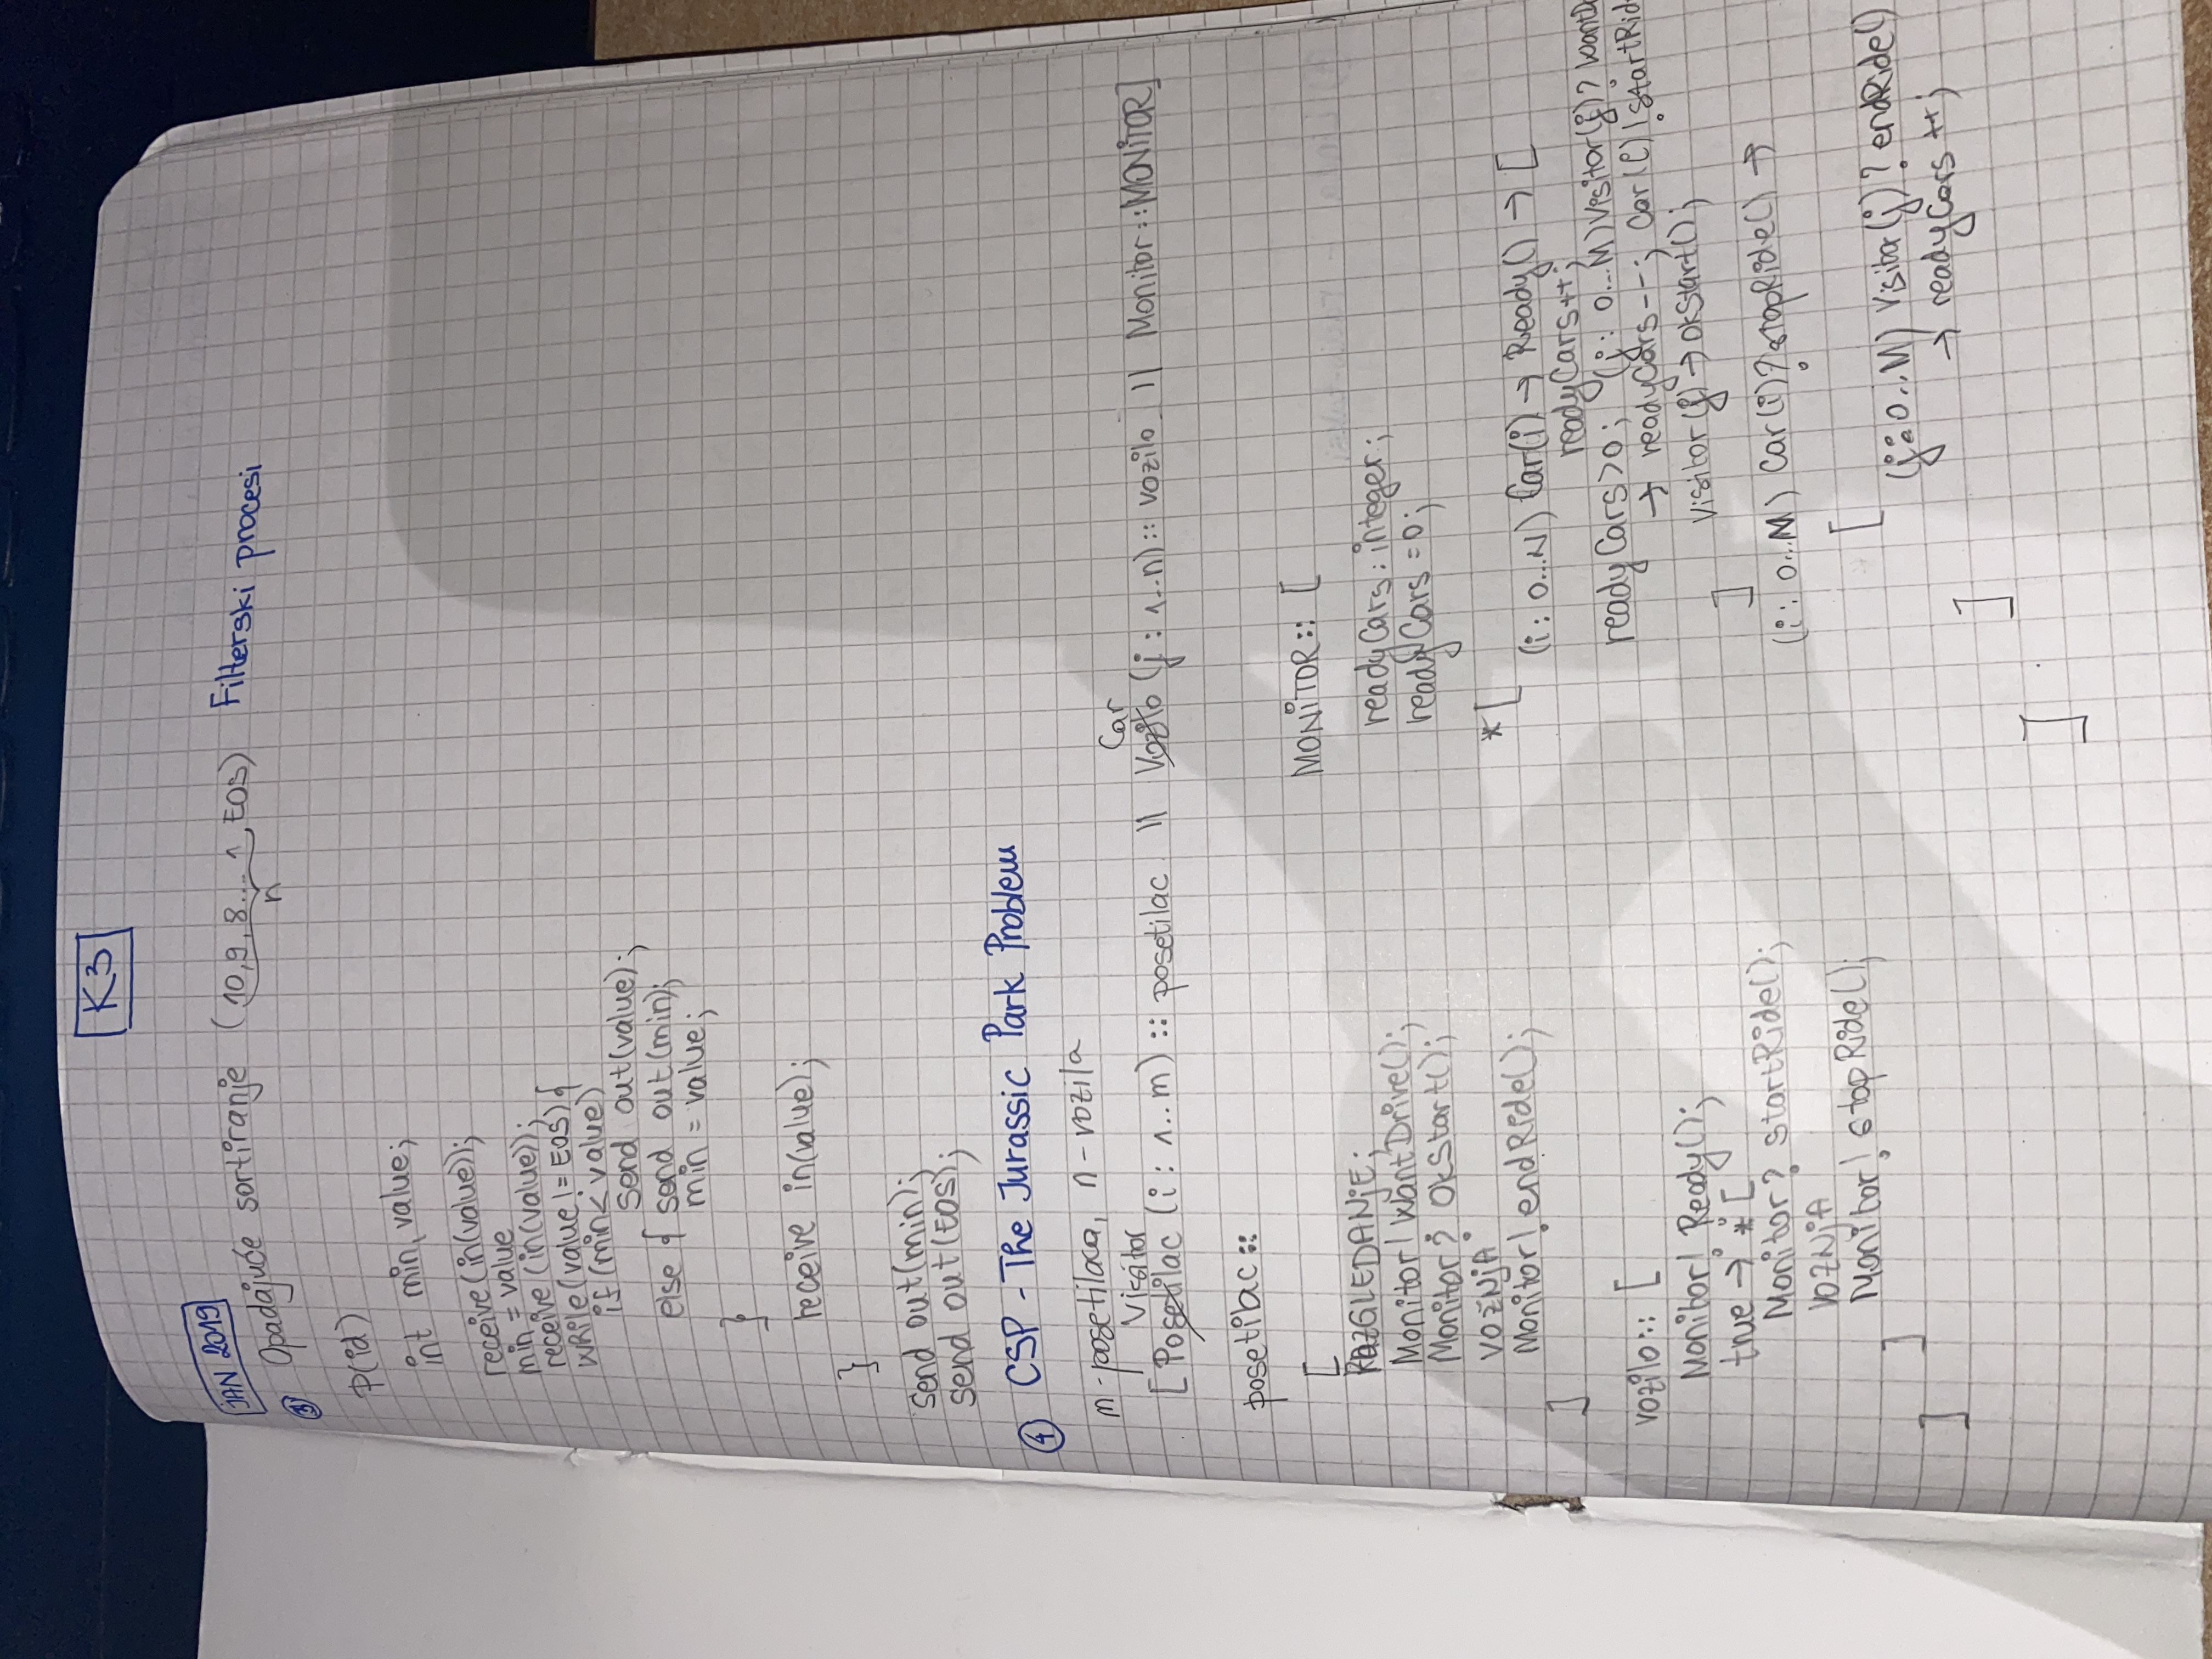 K3
JAN 2019
③ Opadajuće sortiranje (10,9,8...1,EOS) Filterski procesi
n
P(id)
int min, value;
receive(in(value));
min = value
receive(in(value));
while(value != EOS){
if(min < value)
send out(value);
else { send out(min);
min = value;
}
receive in(value);
}
send out(min);
send out(EOS);
④ CSP - The Jurassic Park Problem
m-posetilaca, n-vozila
Visitor Car
[Posetilac (i : 1..m) :: posetilac || Vozilo (j : 1..n) :: vozilo || Monitor::MONiTOR]
posetilac ::
[
RAZGLEDANjE;
Monitor! WantDrive();
Monitor? OkStart();
VOŽNjA
Monitor! endRide();
]
vozilo:: [
Monitor! Ready();
true → *[
Monitor? startRide();
VOZNjA
Monitor! stopRide();
]
]
MONiTOR:: [
readyCars: integer;
readyCars = 0;
*[
(i : 0...N) Car(i) → Ready() → [
readyCars++;
readyCars>0; (j : 0...M) Visitor(j)?
→ readyCars--; Car(i)!
Visitor(j) → OkStart();
]
(i : 0...M) Car(i)? stopRide() →
[
(j:0..M) Visitor(j)? endRide()
→ readyCars ++;
]
]